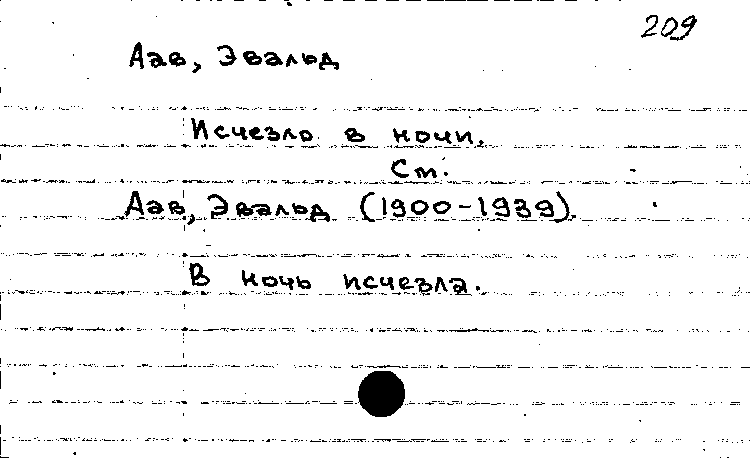 209
Аав, Эвальд
Исчезло в ночи.
Ст.
Аав, Эвальд (1900-1939).
В ночь исчезла.